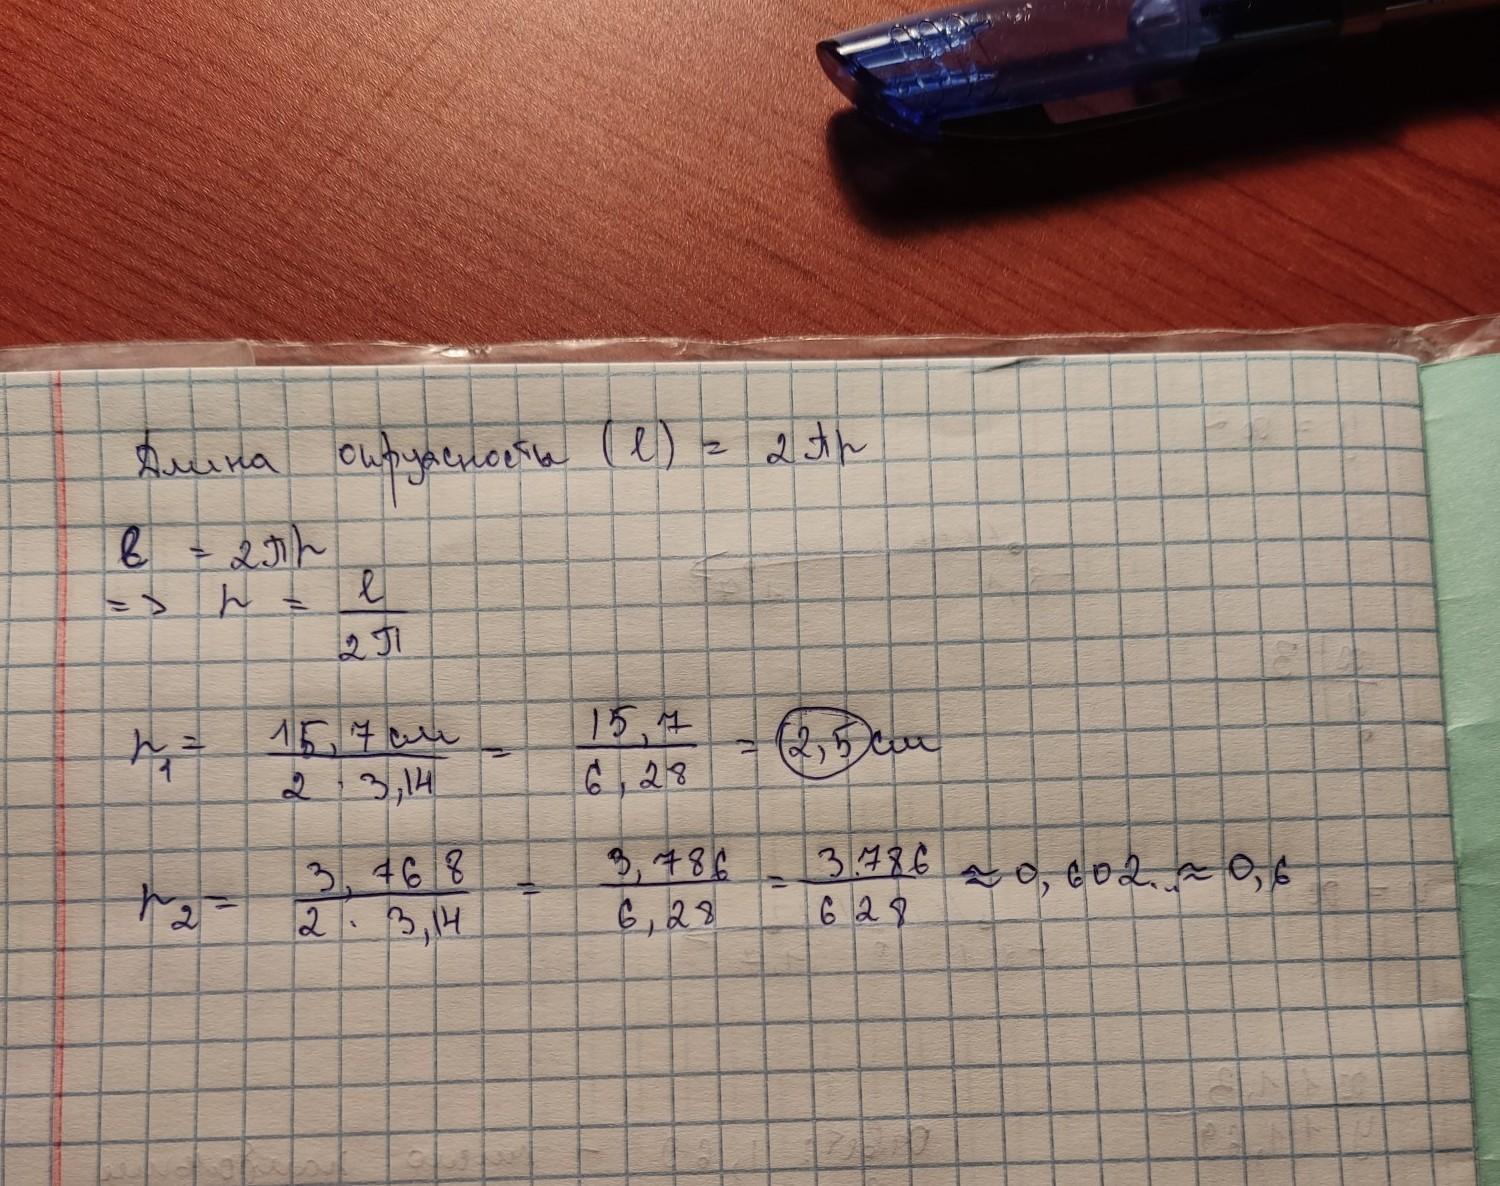 Длина окружность (l) = 2πr
l = 2πr
=> r = l / 2π
r₁ = 15,7 см / 2 · 3,14 = 15,7 / 6,28 = 2,5 см
r₂ = 3,768 / 2 · 3,14 = 3,786 / 6,28 = 3.786 / 628 ≈ 0,602.. ≈ 0,6